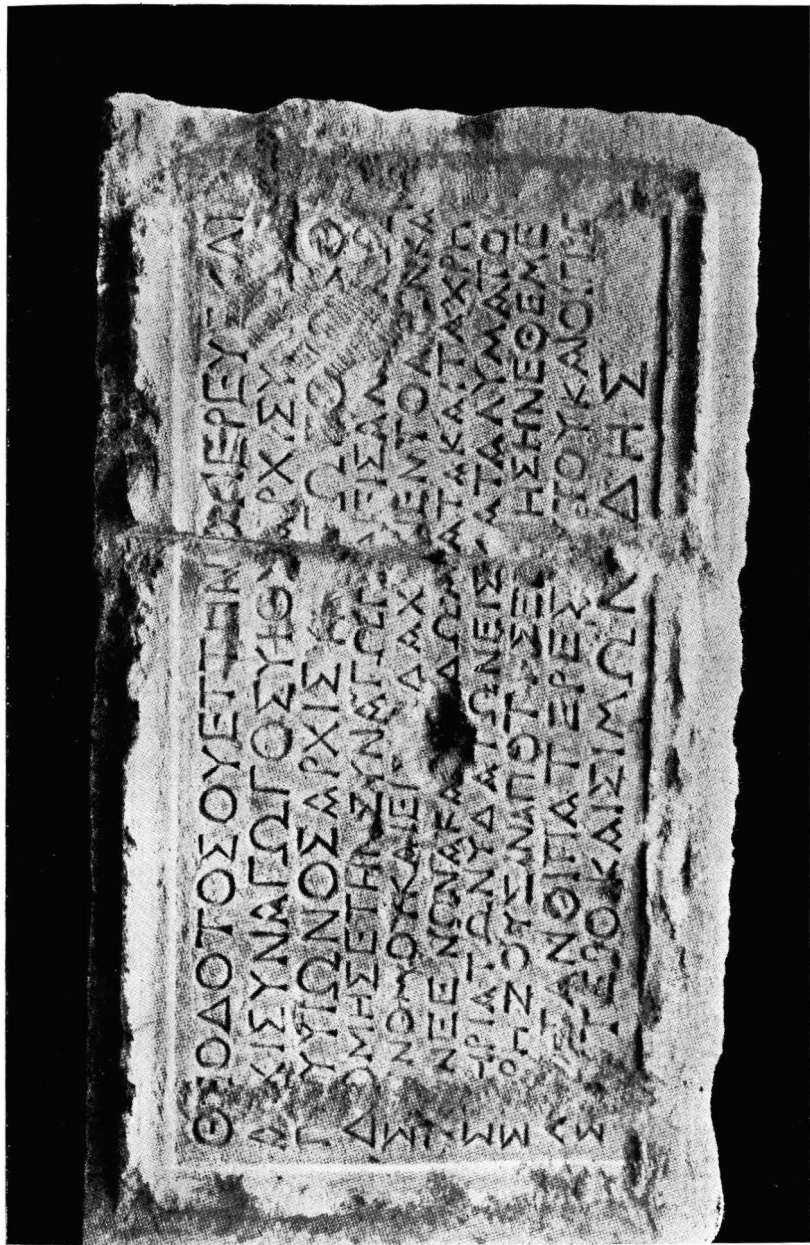 ΘΕΟΔΟΤΟΣ ΟΥΕΤΤΗΝΟΥ ΙΕΡΕΥΣ ΚΑΙ
ΑΡΧΙΣΥΝΑΓΩΓΟΣ ΥΙΟΣ ΑΡΧΙΣΥ
ΓΟΥ ΥΙΩΝΟΣ ΑΡΧΙΣ
ΔΟΜΗΣΕ ΤΗΝ ΣΥΝΑΓΩΓ ΕΙΣ ΑΝ
ΝΟΜΟΥ ΚΑΙ ΕΙΣ ΔΑΧΗΝ ΕΝΤΟΛΩΝ ΚΑΙ
ΞΕΝΩΝΑ ΚΑ ΔΩΜΑΤΑ ΚΑΙ ΤΑ ΧΡΗ
ΣΤΗΡΙΑ ΤΩΝ ΥΔΑΤΩΝ ΕΙΣ ΚΑΤΑΛΥΜΑ ΤΟΙ
Σ ΧΡΗΖΟΥΣΙΝ ΑΠΟ ΤΗΣ ΞΕ ΗΣ ΗΝ ΕΘΕΜΕ
Λ ΣΑΝ ΟΙ ΠΑΤΕΡΕΣ ΥΤΟΥ ΚΑΙ ΟΙ ΠΡΕ
Σ ΥΤΕΡΟΙ ΚΑΙ ΣΙΜΩΝ ΔΗΣ